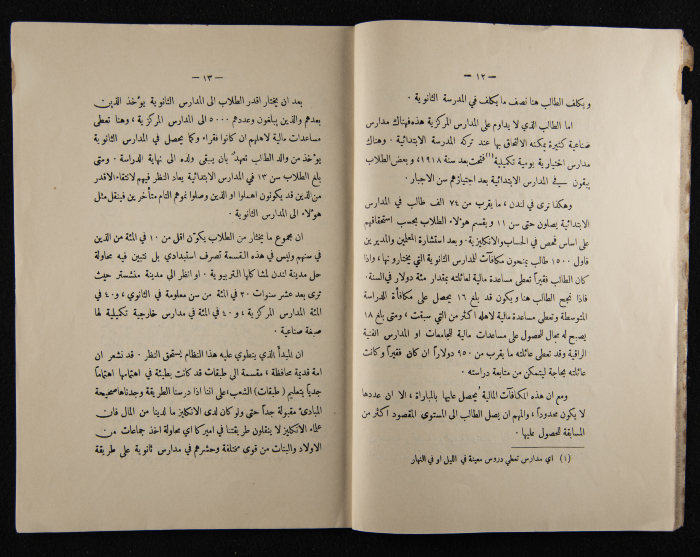 — ١٢ —
ويكلف الطالب هنا نصف ما يكلف في المدرسة الثانوية .
اما الطالب الذي لا يداوم على المدارس المركزية هذه فهناك مدارس
صناعية كثيرة يمكنه الالتحاق بها عند تركه المدرسة الابتدائية . وهناك
مدارس اختيارية يومية تكميلية (١) فتحت بعد سنة ١٩١٨ وبعض الطلاب
يبقون في المدارس الابتدائية بعد اجتيازهم سن الاجبار .
وهكذا نرى في لندن ، ما يقرب من ٧٤ الف طالب في المدارس
الابتدائية يصلون حتى سن ١١ ويقسم هؤلاء الطلاب بحسب استحقاقهم
على اساس فحص في الحساب والانكليزية . وبعد استشارة المعلمين والمديرين
فاول ١٥٠٠ طالب يمنحون مكافآت للمدارس الثانوية التي يختارونها ، واذا
كان الطالب فقيراً تعطى مساعدة مالية لعائلته بمقدار مئة دولار في السنة.
فاذا نجح الطالب هنا ويكون قد بلغ ١٦ يحصل على مكافأة للدراسة
المتوسطة وتعطى مساعدة مالية لاهله اكثر من التي سبقت ، ومتى بلغ ١٨
يصبح له مجال للحصول على مساعدات مالية للجامعات او المدارس الفنية
الراقية وقد تعطى عائلته ما يقرب من ٩٥٠ دولاراً ان كان فقيراً وكانت
عائلته بحاجة ليتمكن من متابعة دراسته .
ومع ان هذه المكافآت المالية يُحصل عليها بالمباراة ، الا ان عددها
لا يكون محدوداً ، والمهم ان يصل الطالب الى المستوى المقصود اكثر من
المسابقة للحصول عليها .
(١) اي مدارس تعطي دروس معينة في الليل او في النهار
— ١٣ —
بعد ان يختار اقدر الطلاب الى المدارس الثانوية يؤخذ الذين
بعدهم والذين يبلغون وعددهم ٥٠٠٠ الى المدارس المركزية ، وهنا تعطى
مساعدات مالية لاهلهم ان كانوا فقراء وكما يحصل في المدارس الثانوية
يؤخذ من والد الطالب تعهد بان يبقى ولده الى نهاية الدراسة . ومتى
بلغ الطلاب سن ١٣ في المدارس الابتدائية يعاد النظر فيهم لانتقاء الاقدر
من الذين قد يكونون اهملوا او الذين وصلوا نموهم التام متأخرين فينقل مثل
هؤلاء الى المدارس الثانوية .
ان مجموع ما يختار من الطلاب يكوّن اقل من ١٠ في المئة من الذين
في سنهم وليس في هذه القسمة تصرف استبدادي بل تتبين فيه محاولة
حل مدينة لندن لمشاكلها التربيوية . او انظر الى مدينة منشستر حيث
ترى بعد عشر سنوات ٢٠ في المئة من سن معلومة في الثانوي ، و٤٠ في
المئة المدارس المركزية ، و٤٠ في المئة في مدارس خارجية تكميلية لها
صبغة صناعية .
ان المبدأ الذي ينطوي عليه هذا النظام يستحق النظر . قد نشعر ان
امة قديمة محافظة ، مقسمة الى طبقات قد كانت بطيئة في اهتمامها اهتماماً
جدياً بتعليم ( طبقات ) الشعب، على اننا اذا درسنا الطريقة وجدناها صحيحة
المبادئ مقبولة جداً حتى ولو كان لدى الانكليز ما لدينا من المال فان
علماء الانكليز لا ينقلون طريقتنا في اميركا اي محاولة اخذ جماعات من
الاولاد والبنات من قوى مختلفة وحشرهم في مدارس ثانوية على طريقة